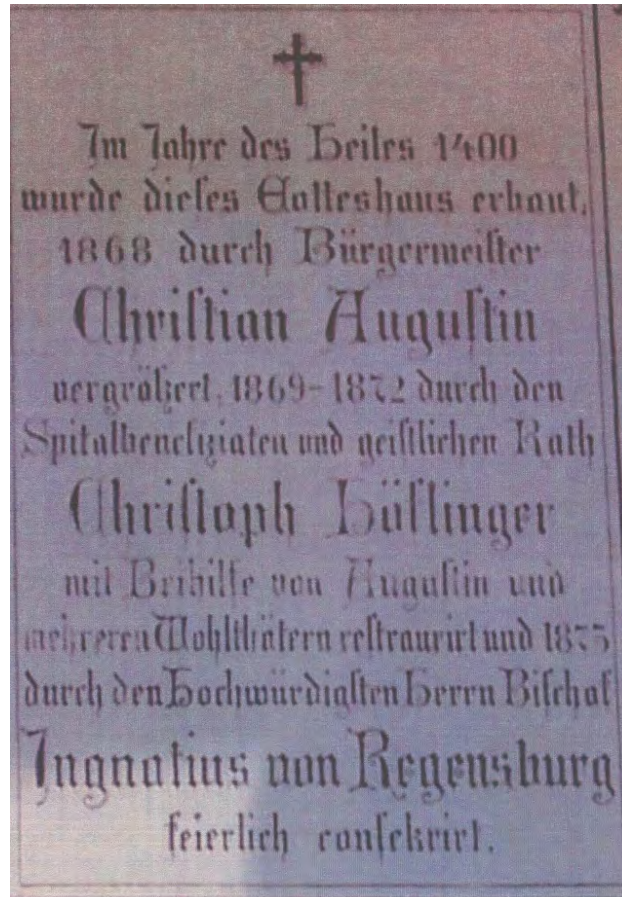 Im Jahre des Heiles 1400
wurde dieses Gotteshaus erbaut,
1868 durch Bürgermeister
Christian Augustin
vergrößert, 1869-1872 durch den
Spitalbenefiziaten und geistlichen Rath
Christoph Höflinger
mit Beihilfe von Augustin und
mehreren Wohlthätern restraurirt und 1875
durch den Hochwürdigsten Herrn Bischof
Ingnatius von Regensburg
feierlich consekrirt.